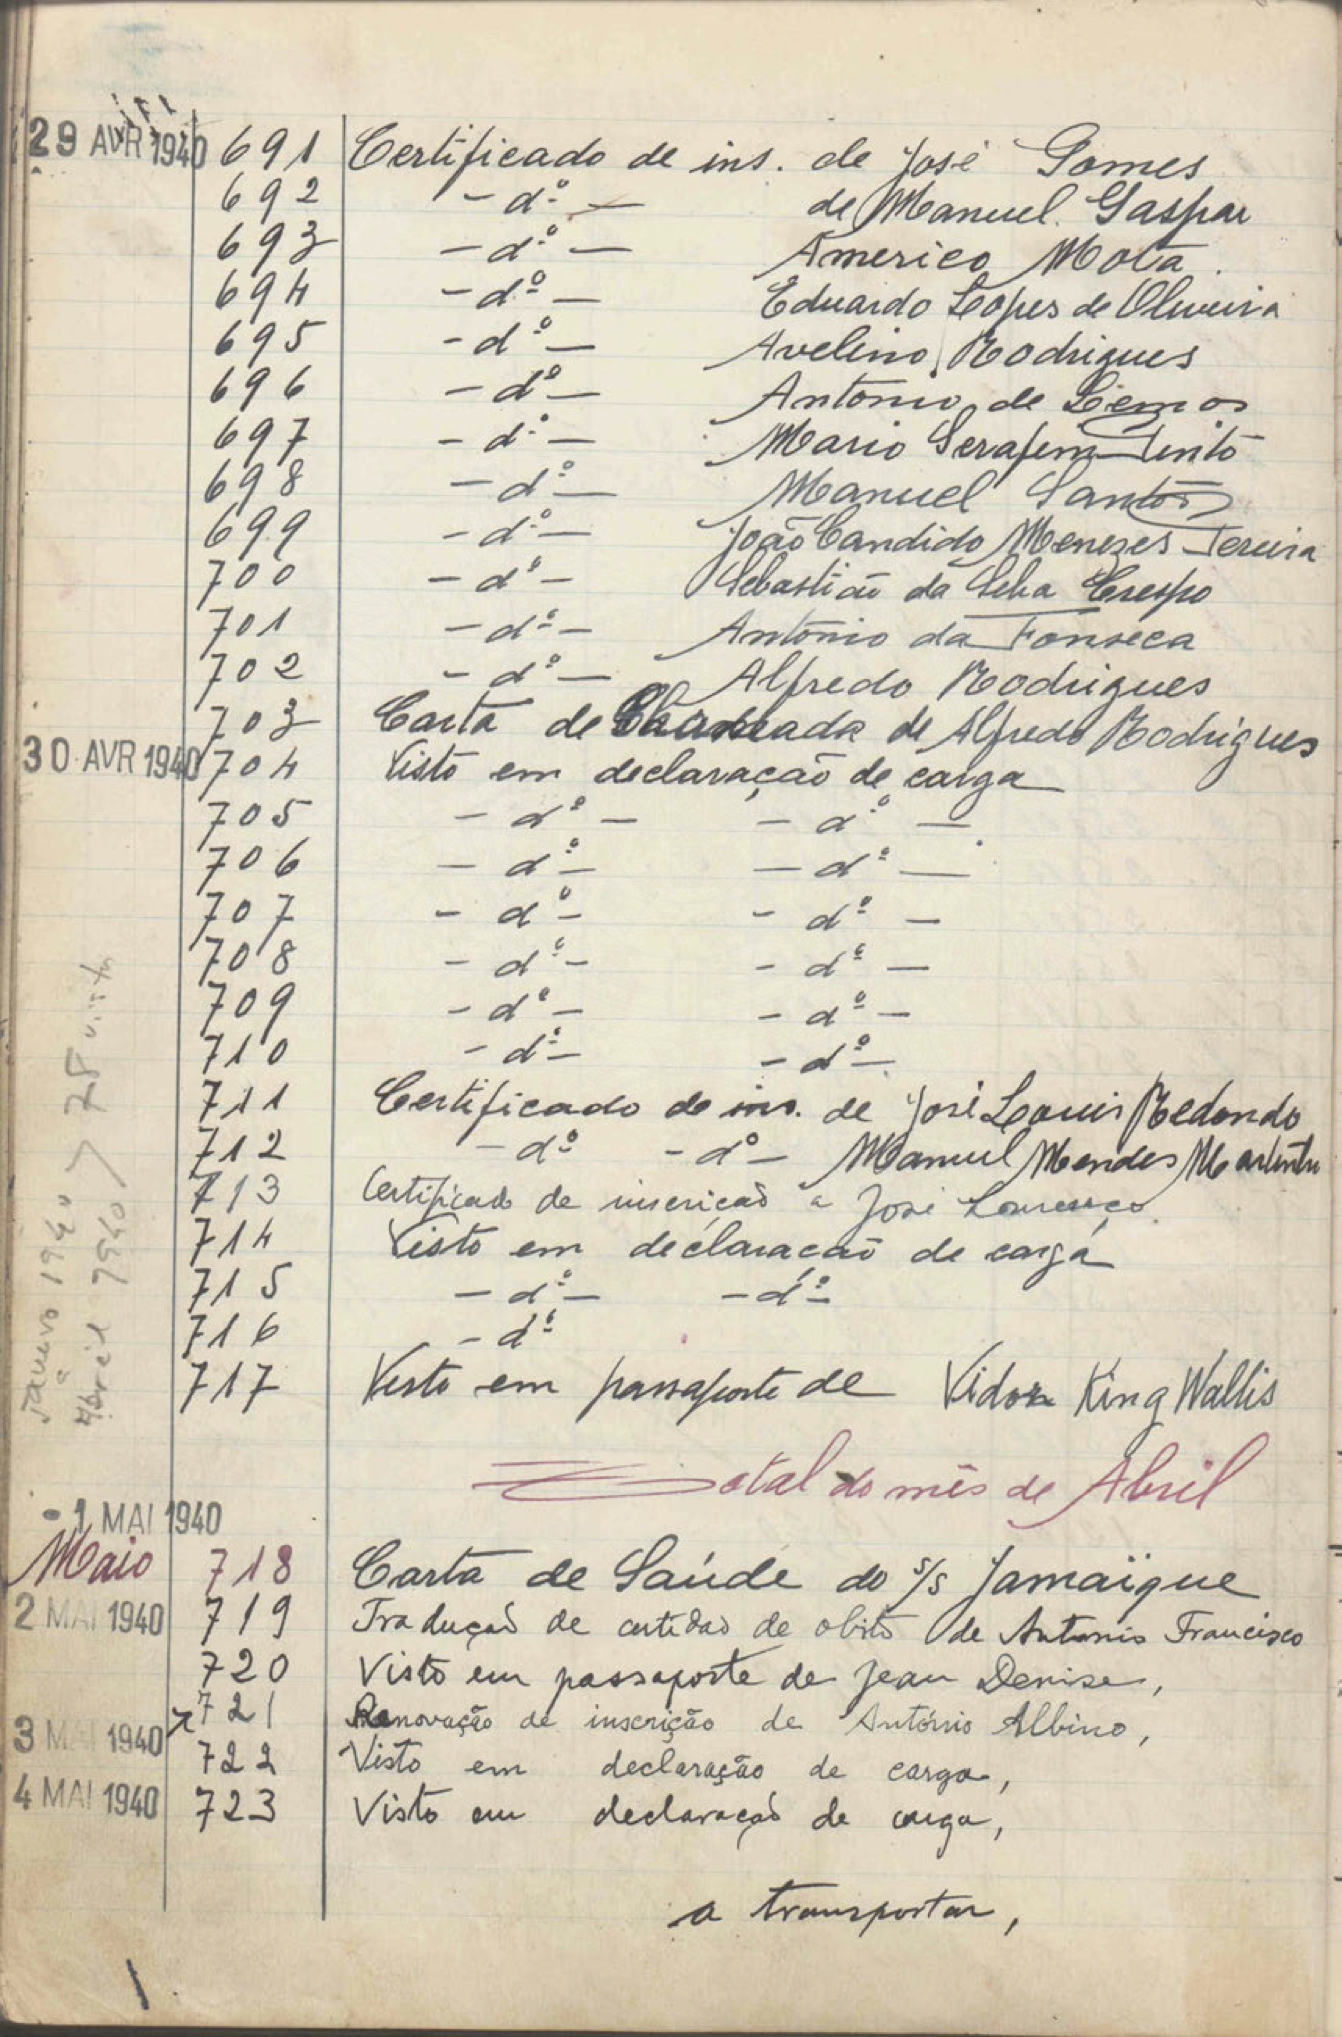 29 AVR 1940 691 Certificado de ins. de José Gomes
692 - dº - de Manuel Gaspar
693 - dº - Americo Mota
694 - dº - Eduardo Lopes de Oliveira
695 - dº - Avelino Rodrigues
696 - dº - Antonio de Lemos
697 - dº - Mario Serafim Pinto
698 - dº - Manuel Santos
699 - dº - João Candido Menezes Pereira
700 - dº - Sebastião da Silva Crespo
701 - dº - Antonio da Fonseca
702 - dº - Alfredo Rodrigues
703 Carta de de Alfredo Rodrigues
30 AVR 1940 704 Visto em declaração de carga
705 - dº - - dº -
706 - dº - - dº -
707 - dº - - dº -
708 - dº - - dº -
709 - dº - - dº -
710 - dº - - dº -
711 Certificado de ins. de José Louis Redondo
712 - dº - dº - Manuel Mendes
713 Certificado de inscrição a José Lourenço
714 Visto em declaração de carga
715 - dº - - dº -
716 - dº
717 Visto em passaporte de Vidor King Wallis
Total do mês de Abril
1 MAI 1940
Maio 718 Carta de Saúde do s/s Jamaïque
2 MAI 1940 719 Tradução de certidão de obito de Antonio Francisco
720 Visto em passaporte de Jean Denise,
721 Renovação de inscrição de António Albino,
3 MAI 1940 722 Visto em declaração de carga,
4 MAI 1940 723 Visto em declaração de carga,
a transportar,
Janeiro 1940
a
Abril 1940
78 vistos